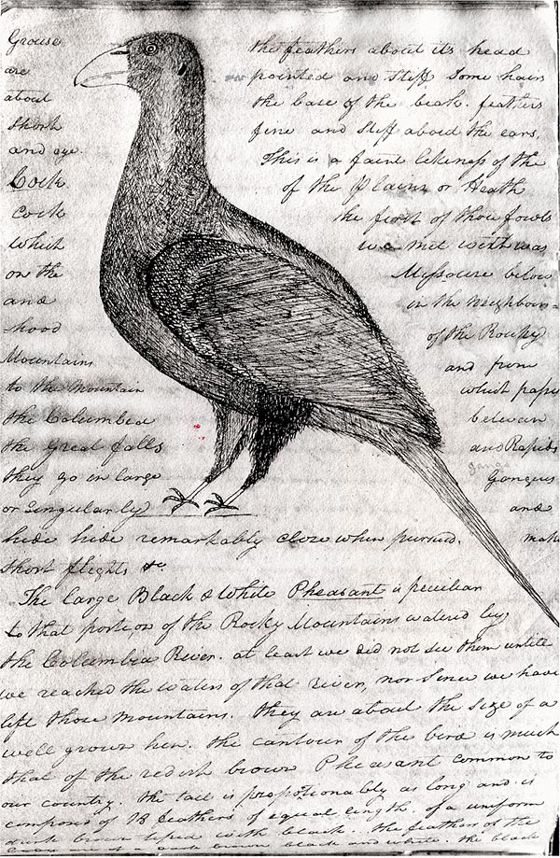 Grouse the feathers about its head
are pointed and stiff some hairs
about the base of the beak. feathers
short fine and stiff about the ears.
and eye. This is a faint likeness of the
Cock of the Plains or Heath
Cock the first of those fowls
which we met with was
on the Missouri below
and in the neighbor
hood of the Rocky
Mountains and from
to the mountain which pass
the Columbia between
the Great falls and Rapids
they go in large Gangues
or singularly and
hide hide remarkably close when pursued, make
short flights &c
The large Black & White Pheasant is peculiar
to that portion of the Rocky Mountains watered by
the Columbia River. at least we did not see them untill
we reached the waters of that river, nor since we have
left those mountains. they are about the size of a
well grown hen. the contour of the bird is much
that of the redish brown Pheasant common to
our country. the tail is proportionably as long and is
composed of 18 feathers of equal length. of a uniform
dark brown tiped with black. the feathers of the
dark brown black and white. the black